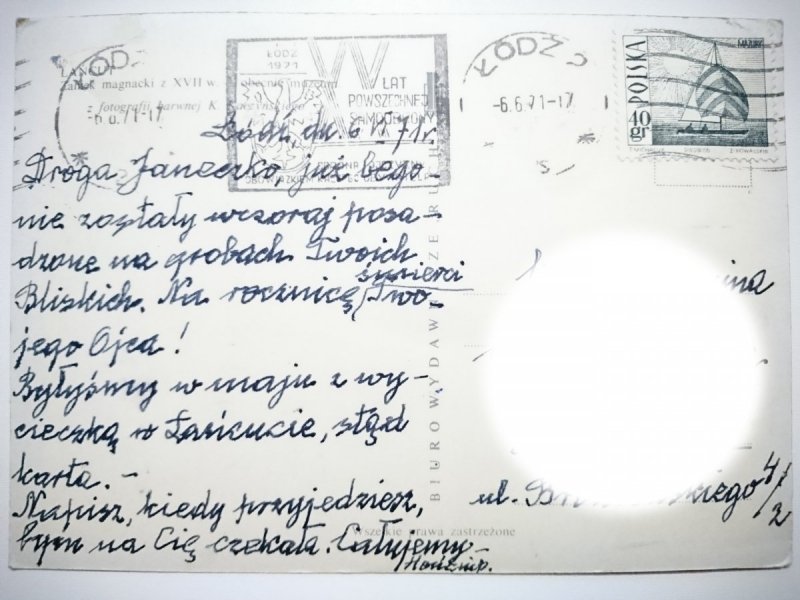 ŁAŃCUT
zamek magnacki z XVII w. obecnie muzeum
z fotografii barwnej K.
ŁÓDŹ
6.6.71-17
ŁÓDŹ
1971
XXV
LAT
POWSZECHNEJ
SAMOOBRONY
ŁÓDŹ 2
-6.6.71-17
POLSKA
MAZURY
40 gr
Łódź, dn. 6 VI 71 r.
Droga Janeczko, już bego-
nie zostały wczoraj posa-
dzone na grobach Twoich
Bliskich. Na rocznicę śmierci Two-
jego Ojca!
Byłyśmy w maju z wy-
cieczką w Łańcucie, stąd
karta. -
Napisz, kiedy przyjedziesz,
bym na Cię czekała. Całujemy -
ul. kiego 4/2
BIURO WYDAWNICZE RUCH
Wszelkie prawa zastrzeżone